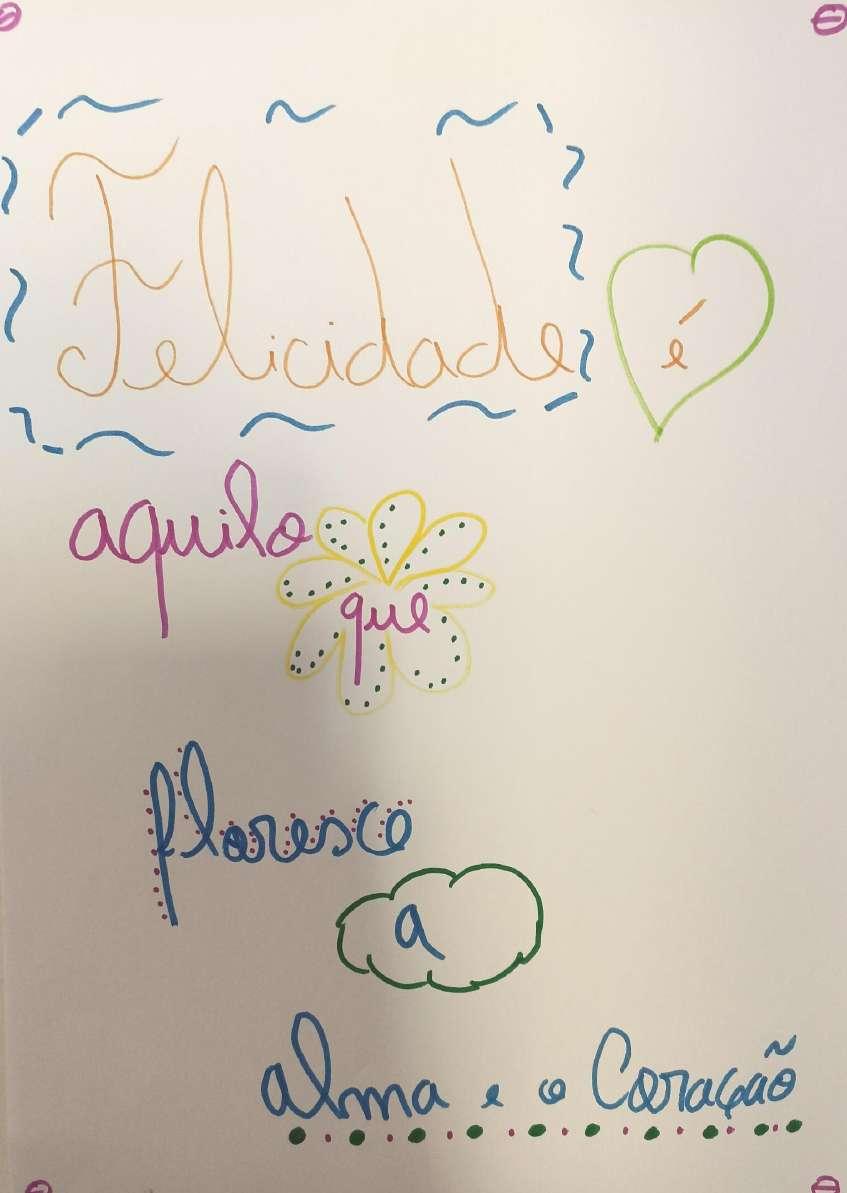 Felicidade é
aquilo que
floresce
a
alma e o Coração